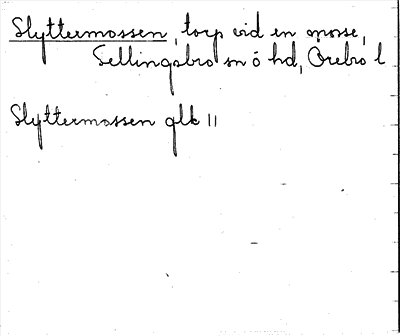 Slyttermossen, torp vid en mosse,
Tellingsbro sn ó hd, Örebro l
Slyttermossen glk 11